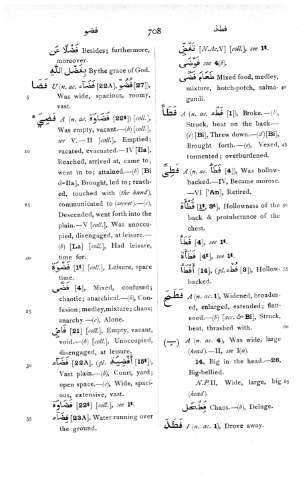 فضو 708 فطذ
فَضْلًا عَنْ Besides; furthermore,
moreover.
بِفَضْلِ اللّٰه By the grace of God.
فَضَا U (n. ac. فَضَآء [22A], فُضُوّ [27]),
Was wide, spacious, roomy,
vast.
فَضِيَ A (n. ac. [22ᵗ]) [coll.],
Was empty, vacant.—(b) [coll.],
see V.—II [coll.], Emptied;
vacated, evacuated.—IV [Ila],
Reached, arrived at, came to;
went in to; attained.—(b) [Bi
& Ila], Brought, led to; reach-
ed, touched with (the hand),
communicated to (secret).—(c),
Descended, went forth into the
plain.—V [coll.], Was unoccu-
pied, disengaged, at leisure.—
(b) [La] [coll.], Had leisure,
time for.
[1ᵗ] [coll.], Leisure, space
time.
[4], Mixed, confused;
chaotic; anarchical.—(b), Con-
fusion; medley, mixture; chaos;
anarchy.—(c), Alone.
فَاضٍ [21] [coll.], Empty, vacant,
void.—(b) [coll.], Unoccupied,
disengaged, at leisure.
فَضَآء [22A], (pl. أَفْضِيَة [15ᵗ]),
Vast plain.—(b), Court, yard;
open space.—(c), Wide, spaci-
ous, extensive, vast.
[22ᵗ] [coll.], see 1ᵗ.
[23A], Water running over
the ground.
[N.Ac.V] [coll.], see 1ᵗ.
see 4(b).
Mixed food, medley,
mixture, hotch-potch, salma-
gundi.
فَطَأَ A (n. ac. فَطْء [1]), Broke.—(b),
Struck, beat on the back.—
(c) [Bi], Threw down.—(d) [Bi],
Brought forth.—(e), Vexed,
tormented; overburdened.
فَطِئَ A (n. ac. فَطَأ [4]), Was hollow-
backed.—IV, Became morose.
—VI ['An], Retired.
[1ᵗ, 3ᵗ], Hollowness of the
back & protuberance of the
chest.
فَطَأ [4], see 1ᵗ.
[4ᵗ], see 1ᵗ.
أَفْطَأ [14], (pl. فُطْء [3]), Hollow-
backed.
فَطَحَ A (n. ac. 1), Widened, broaden-
ed, enlarged, extended; flat-
tened.—(b) [acc. & Bi], Struck,
beat, thrashed with.
(ــِـ) A (n. ac. 4), Was wide, large
(head).—II, see I(a).
14, Big in the head.—26,
Big-bellied.
N.P.II, Wide, large, big
(head).
فِطَحْل Chaos.—(b), Deluge.
فَطَذَ I (n. ac. 1), Drove away.